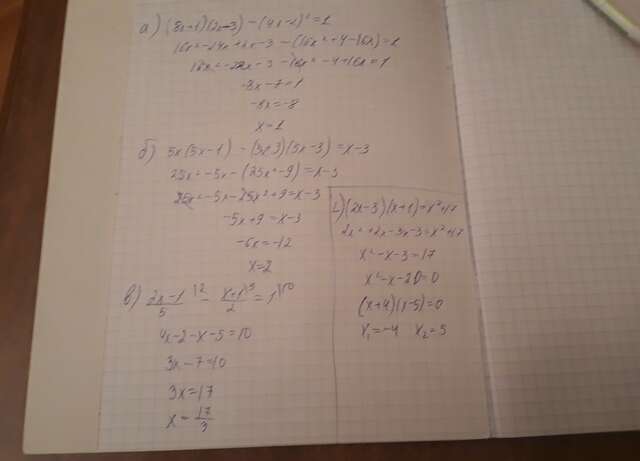 а) (8x+1)(2x-3) -(4x-2)²=1
16x²-24x+2x-3 -(16x²+4-16x)=1
16x²-22x-3 -16x²-4+16x=1
-8x=-8
x=1
б) 5x(5x-1) -(5x+3)(5x-3)=x-3
25x²-5x-(25x²-9)=x-3
25x²-5x-25x²+9=x-3
-5x+9=x-3
-6x=-12
x=2
в) 2x-1/5 \2 - x+1/2 \5 =1\10
4x-2-x-5=10
3x-7=10
3x=17
x=17/3
(2x-3)(x+1)=x²+17
2x²+2x-3x-3=x²+17
x²-x-3=17
x²-x-20=0
(x+4)(x-5)=0
x₁=-4 x₂=5